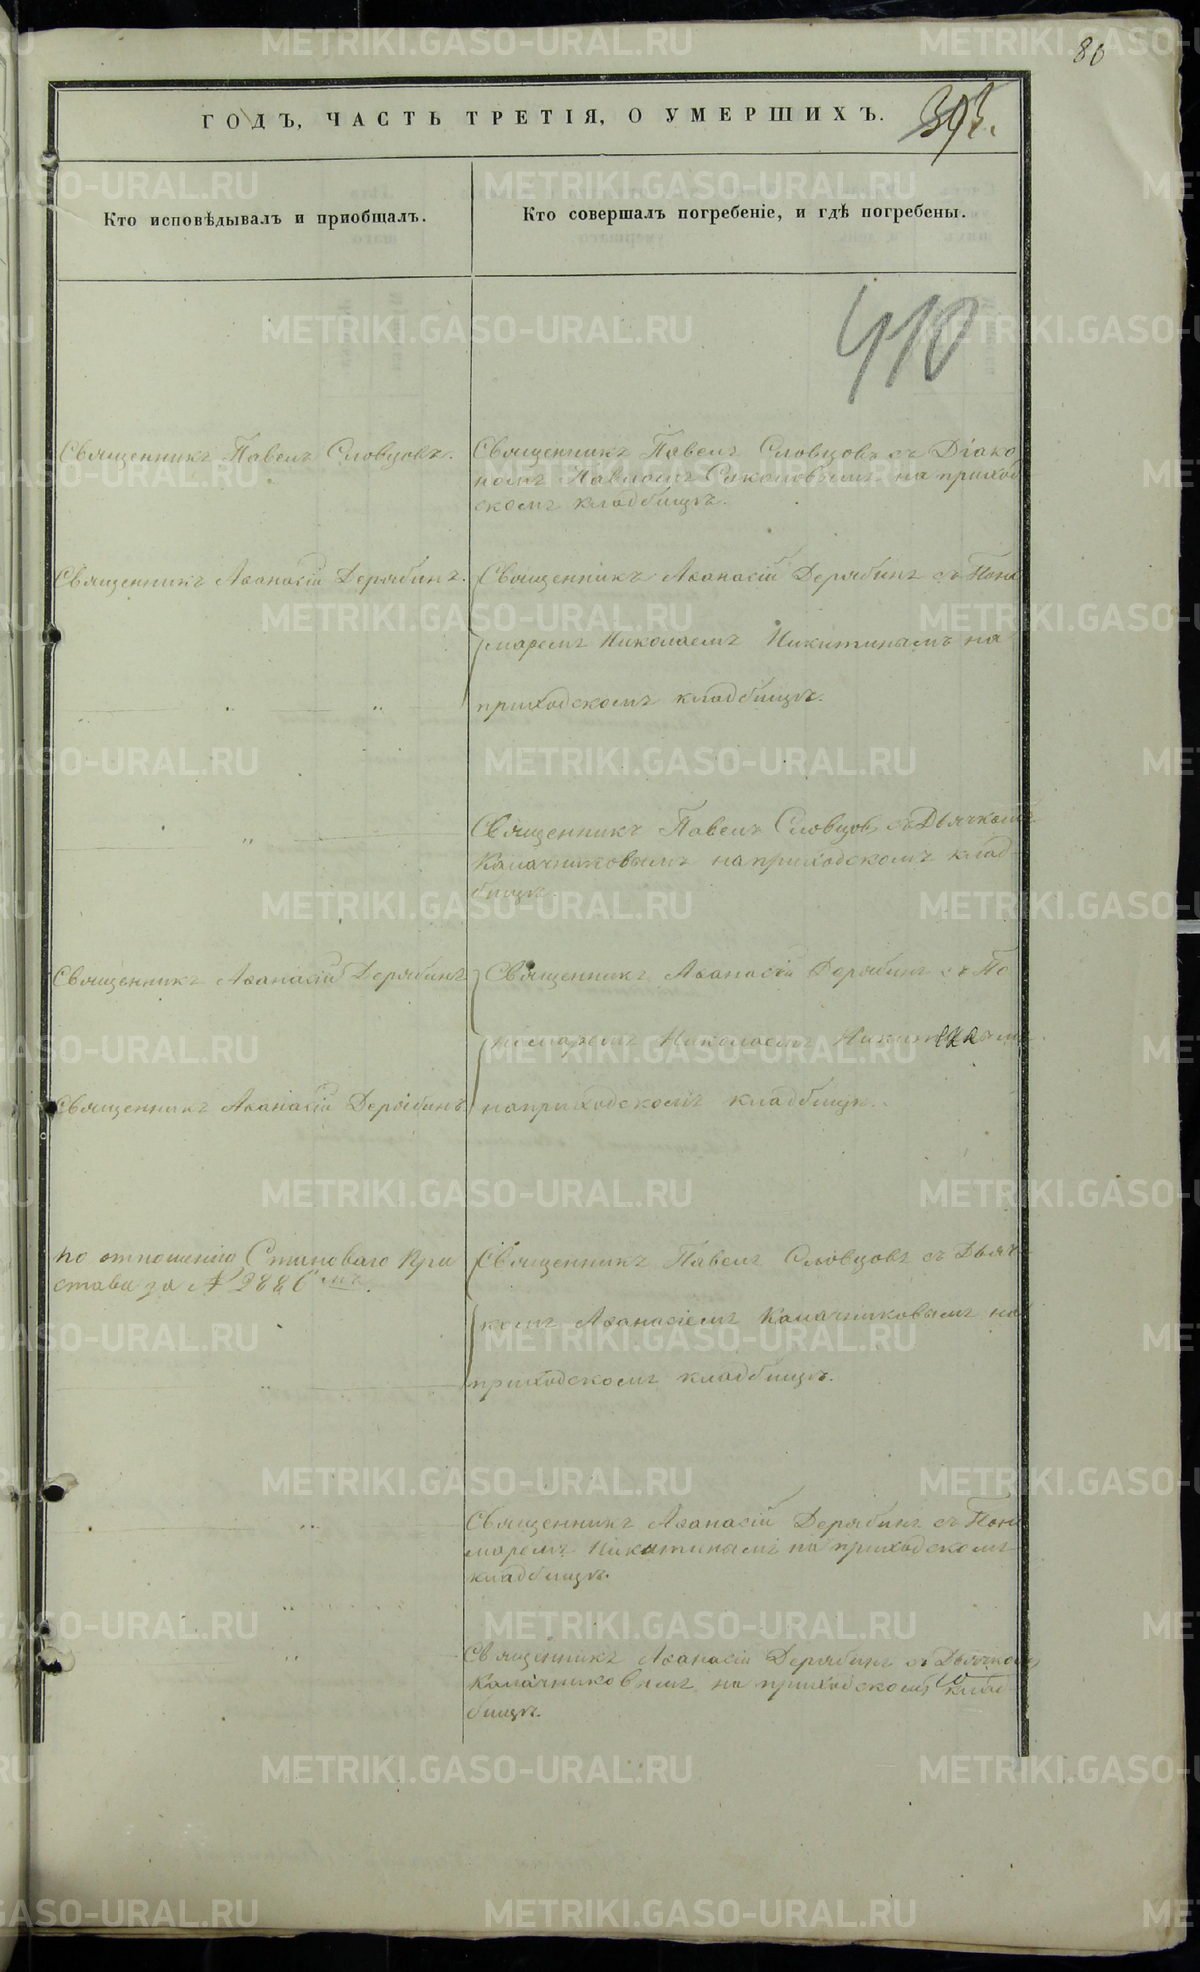 80
ГОДЪ, ЧАСТЬ ТРЕТІЯ, О УМЕРШИХЪ.
Кто исповѣдывалъ и приобщалъ.
Кто совершалъ погребеніе, и гдѣ погребены.
410
Священникъ Павелъ Словцовъ.
Священникъ Павелъ Словцовъ съ Діако
номъ Павломъ Соколовымъ на приход
скомъ кладбищѣ.
Священникъ Аѳанасій Дерябинъ.
Священникъ Аѳанасій Дерябинъ съ Поно
маремъ Николаемъ Никитинымъ на
приходскомъ кладбищѣ.
Священникъ Павелъ Словцовъ съ Дьячкомъ
Калачниковымъ на приходскомъ клад
бищѣ.
Священникъ Аѳанасій Дерябинъ
Священникъ Аѳанасій Дерябинъ съ По
номаремъ Николаемъ Никитинымъ
Священникъ Аѳанасій Дерябинъ.
на приходскомъ кладбищѣ.
по отношенію Становаго При
става за № 2886 мъ.
Священникъ Павелъ Словцовъ съ Дьяч
комъ Аѳанасіемъ Калачниковымъ на
приходскомъ кладбищѣ.
Священникъ Аѳанасій Дерябинъ съ Поно
маремъ Никитинымъ на приходскомъ
кладбищѣ.
Священникъ Аѳанасій Дерябинъ съ Дьячкомъ
Калачниковымъ на приходскомъ клад
бищѣ.
METRIKI.GASO-URAL.RU